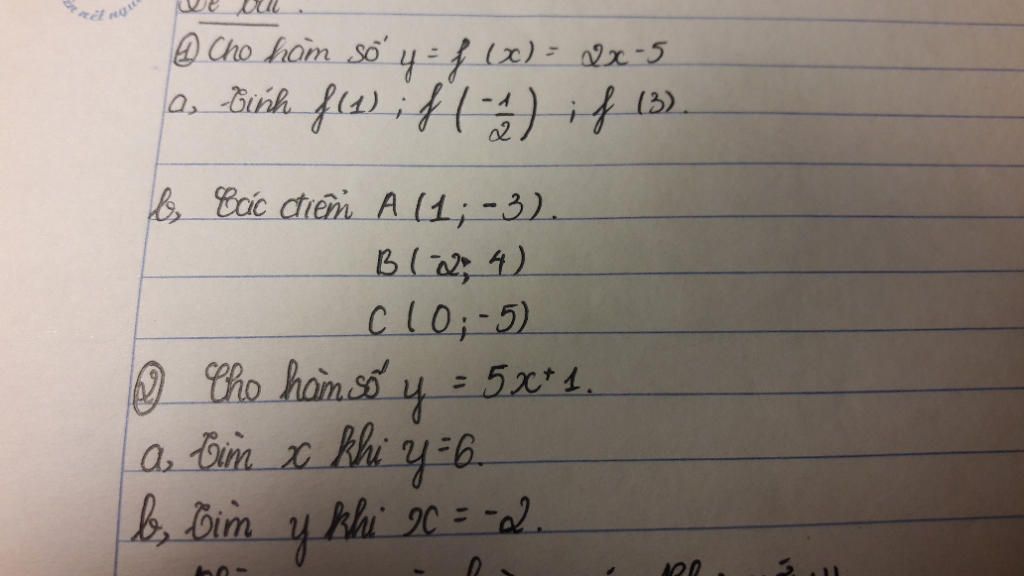 Đề bài.
① Cho hàm số y = f (x) = 2x - 5
a, Tính f(1) ; f (-1/2) ; f (3).
b, Các điểm A (1 ; -3).
B (-2; 4)
C (0 ; -5)
② Cho hàm số y = 5x + 1.
a, Tìm x khi y = 6.
b, Tìm y khi x = -2.